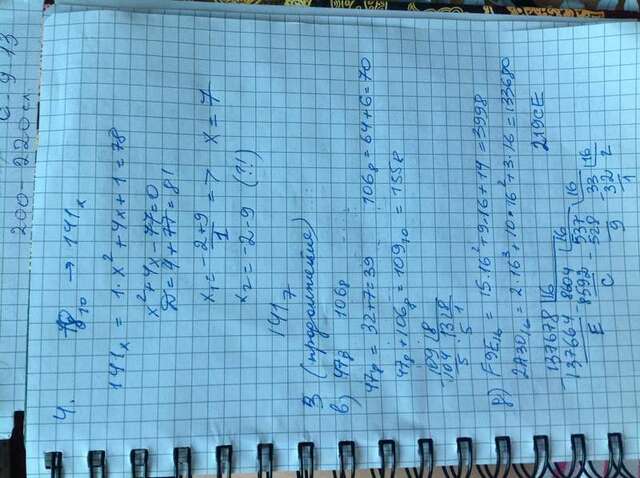 200-220сл.
4. 78₁₀ → 141ₓ
141ₓ = 1·x²+4x+1=78
x²+4x-77=0
D=4+77=81
x₁ = (-2+9)/1 = 7 x=7
x₂ = -2-9 (!!)
141₇
3 (продолжение)
в) 47₈ 106₈
47₈ = 32+7=39 106₈ = 64+6=70
47₈+106₈ = 109₁₀ = 155₈
109 |8
104 13 |8
5 5 1
д) F9E₁₆ = 15·16²+9·16+14=3998
2A30₁₆ = 2·16³+10·16²+3·16=133680
219CE
137678 |16
137664 8604 |16
E 8592 537 |16
C 528 33 |16
9 32 2
1